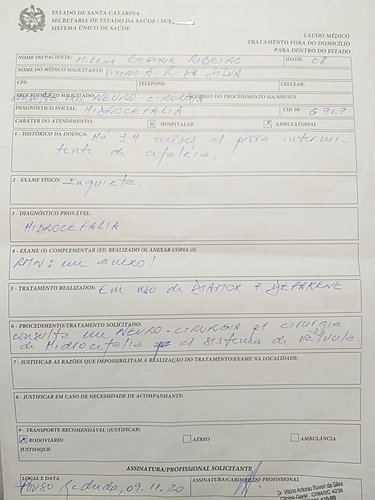 ESTADO DE SANTA CATARINA
SECRETARIA DE ESTADO DA SAÚDE / SUS
SISTEMA ÚNICO DE SAÚDE
LAUDO MÉDICO
TRATAMENTO FORA DO DOMICÍLIO
PARA DENTRO DO ESTADO
NOME DO PACIENTE: MILENA BEATRIZ RIBEIRO IDADE: 08
NOME DO MÉDICO SOLICITANTE: VITORIO A. R. DA SILVA
CPF: TELEFONE: CELULAR:
PROCEDIMENTO SOLICITADO: CÓDIGO DO PROCEDIMENTO SIA/SIH/SUS
NEURO-CIRURGIA
DIAGNÓSTICO INICIAL: HIDROCEFALIA CID 10: G 91.9
CARÁTER DO ATENDIMENTO: X HOSPITALAR X AMBULATORIAL
1 - HISTÓRICO DA DOENÇA: Há 14 meses c/ intermi-
tente de cefaleia.
2 - EXAME FÍSICO: Inquieta
3 - DIAGNÓSTICO PROVÁVEL:
HIDROCEFALIA
4 - EXAME (S) COMPLEMENTAR (ES) REALIZADO (S) ANEXAR CÓPIA (S)
RMN: em anexo!
5 - TRATAMENTO REALIZADOS: Em uso de DIAMOX + DEPAKENE
6 - PROCEDIMENTO/TRATAMENTO SOLICITADO:
consulta em NEURO-CIRURGIA p/ cirurgia
de Hidrocefalia c/ sistema de válvula.
7 - JUSTIFICAR AS RAZÕES QUE IMPOSSIBILITAM A REALIZAÇÃO DO TRATAMENTO/EXAME NA LOCALIDADE:
8 - JUSTIFICAR EM CASO DE NECESSIDADE DE ACOMPANHANTE:
9 - TRANSPORTE RECOMENDÁVEL (JUSTIFICAR)
X RODOVIÁRIO AÉREO AMBULÂNCIA
JUSTIFIQUE:
ASSINATURA/PROFISSIONAL SOLICITANTE
LOCAL E DATA ASSINATURA/CARIMBO DO PROFISSIONAL
Pouso Redondo, 09.11.20
Dr. Vitório Antonio Roveri da Silva
Clínico Geral - CRM/SC 4236